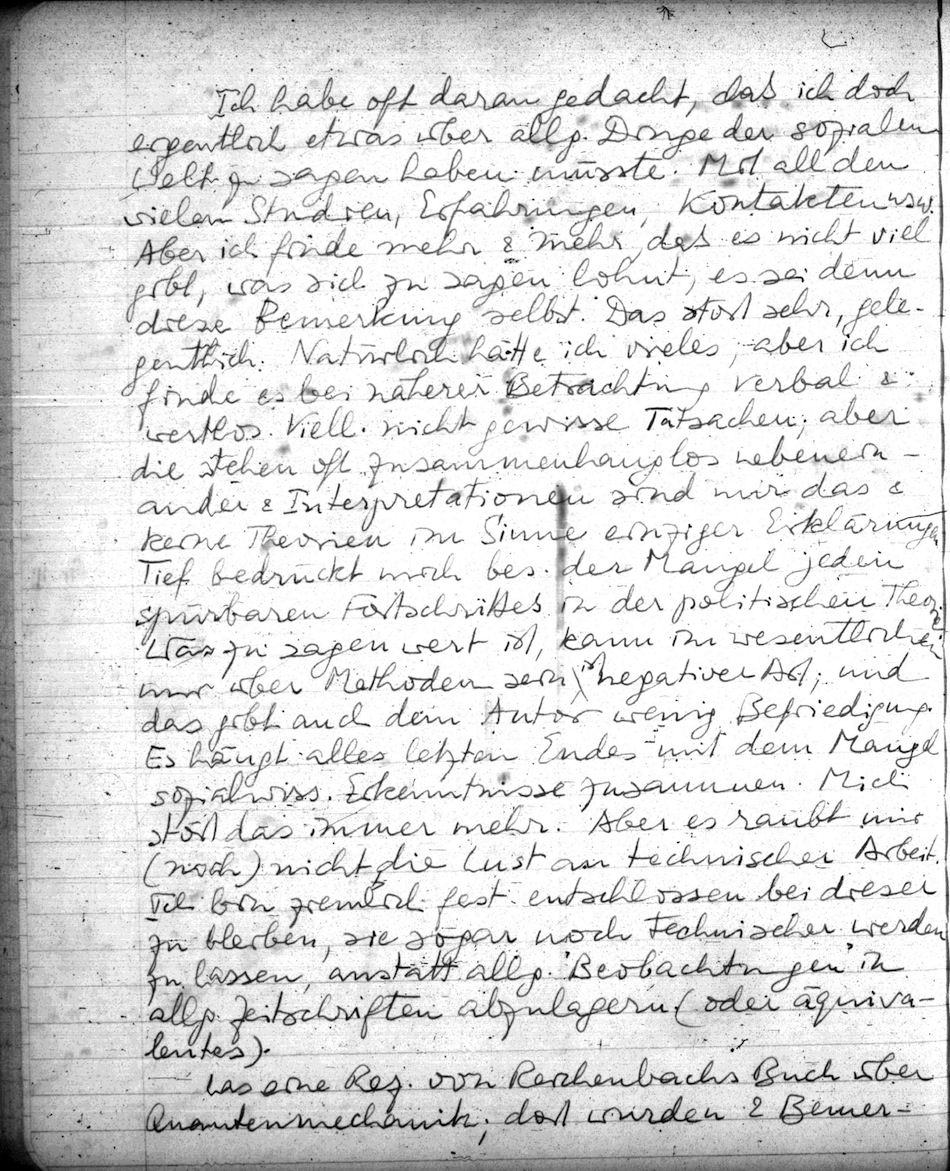 Ich habe oft daran gedacht, daß ich doch
eigentlich etwas über allg. Dinge der sozialen
Welt zu sagen haben müsste. Mit all den
vielen Studien, Erfahrungen, Kontakten usw.
Aber ich finde mehr & mehr daß es nicht viel
gibt, was sich zu sagen lohnt, es sei denn
diese Bemerkung selbst. Das stört sehr, gele-
gentlich. Natürlich hätte ich vieles, aber ich
finde es bei näherer Betrachtung verbal &
wertlos. Viell. nicht gewisse Tatsachen; aber
die stehen oft zusammenhanglos nebenein-
ander & Interpretationen sind nur das &
keine Theorien im Sinne einziger Erklärungen
Tief bedrückt mich bes. der Mangel jeden
spürbaren Fortschrittes in der politischen Theorie
Was zu sagen wert ist, kann im wesentlichen
nur über Methoden sein, negativer Art; und
das gibt auch dem Autor wenig Befriedigung.
Es hängt alles letzten Endes mit dem Mangel
sozialwiss. Erkenntnisse zusammen. Mich
stört das immer mehr. Aber es raubt mir
(noch) nicht die Lust an technischer Arbeit.
Ich bin ziemlich fest entschlossen bei dieser
zu bleiben, sie sogar noch technischer werden
zu lassen, anstatt allg. "Beobachtungen" in
allg. Zeitschriften abzulagern (oder äquiva-
lentes).
Las eine Rez. von Reichenbachs Buch über
Quantenmechanik; dort wurden 2 Bemer-